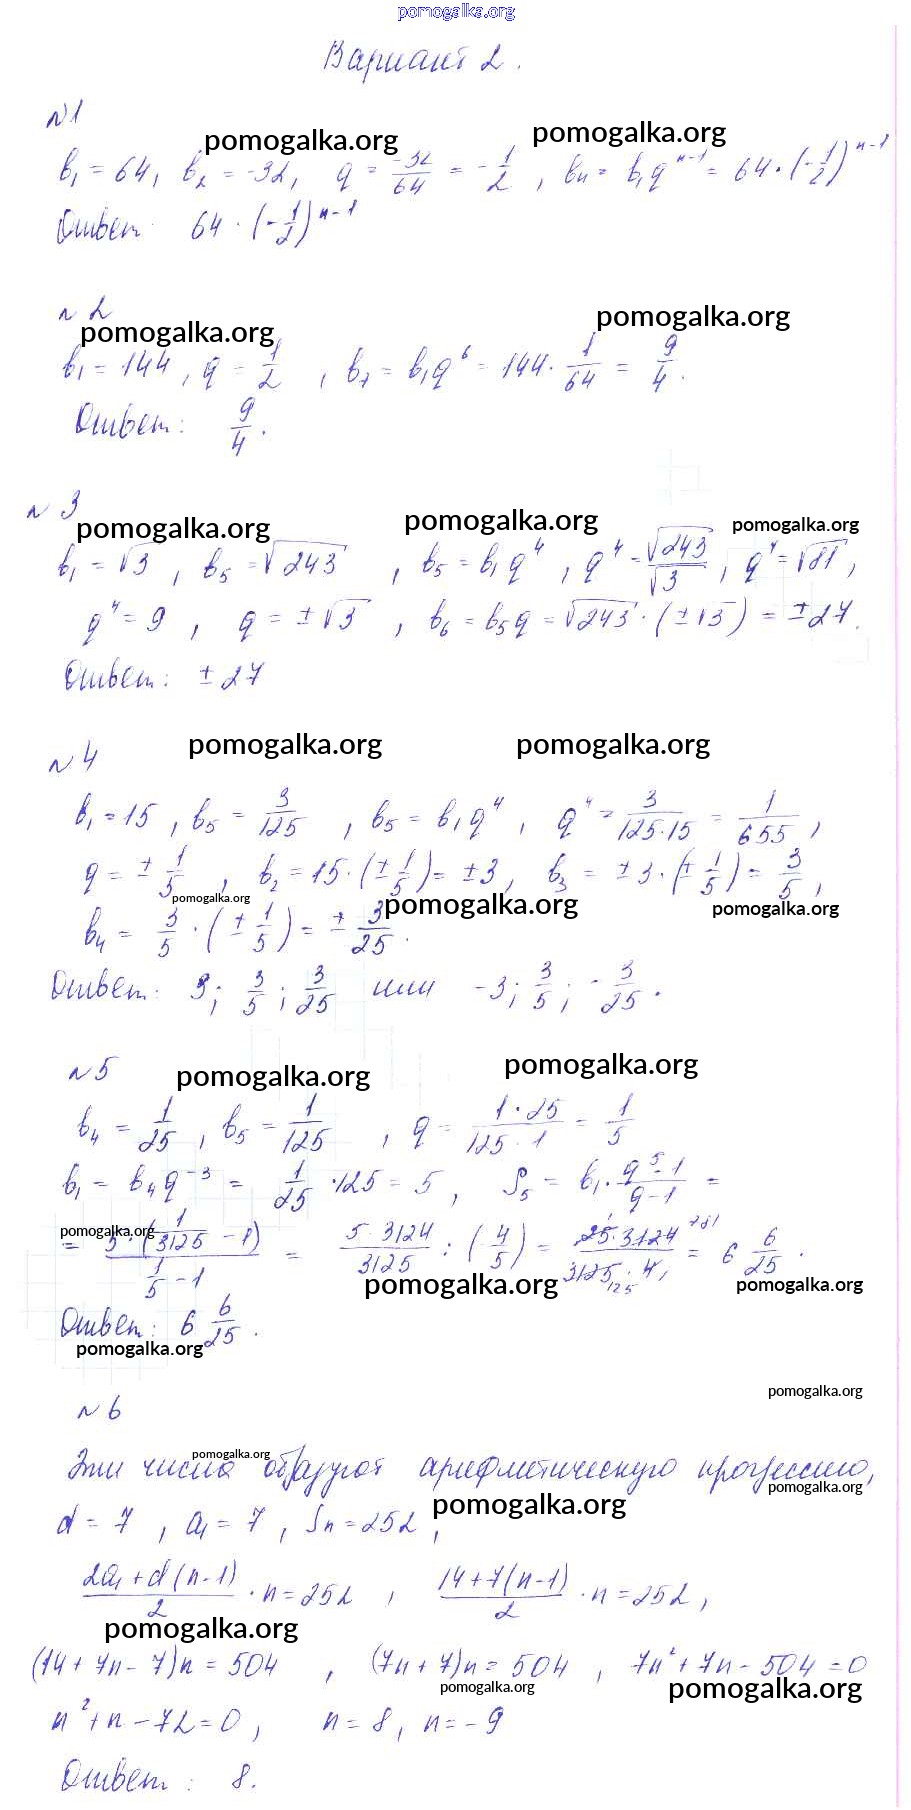 pomogalka.org
Вариант 2.
№1
pomogalka.org pomogalka.org
b₁ = 64, b₂ = -32, q = -32/64 = -1/2, bₙ = b₁qⁿ⁻¹ = 64·(-1/2)ⁿ⁻¹
Ответ: 64·(-1/2)ⁿ⁻¹
№2
pomogalka.org pomogalka.org
b₁ = 144, q = 1/2, b₇ = b₁q⁶ = 144·1/64 = 9/4.
Ответ: 9/4.
№3
pomogalka.org pomogalka.org pomogalka.org
b₁ = √3, b₅ = √243, b₅ = b₁q⁴, q⁴ = √243/√3, q⁴ = √81,
q⁴ = 9, q = ±√3, b₆ = b₅q = √243·(±√3) = ±27.
Ответ: ±27
№4
pomogalka.org pomogalka.org
b₁ = 15, b₅ = 3/125, b₅ = b₁q⁴, q⁴ = 3/125·15 = 1/655,
q = ±1/5, b₂ = 15·(±1/5) = ±3, b₃ = ±3·(±1/5) = 3/5,
pomogalka.org pomogalka.org pomogalka.org
b₄ = 3/5·(±1/5) = ±3/25.
Ответ: 3; 3/5; 3/25 или -3; 3/5; -3/25.
№5
pomogalka.org pomogalka.org
b₄ = 1/25, b₅ = 1/125, q = 1·25/125·1 = 1/5
b₁ = b₄q⁻³ = 1/25·125 = 5, S₅ = b₁·q⁵-1/q-1 =
pomogalka.org
= 5·(1/3125 - 1)/1/5 - 1 = 5·3124/3125 : (4/5) = 25·3124 781/3125·4 125 = 6 6/25.
pomogalka.org pomogalka.org
Ответ: 6 6/25.
pomogalka.org
pomogalka.org
№6
pomogalka.org
Эти числа образуют арифметическую прогрессию,
pomogalka.org pomogalka.org
d = 7, a₁ = 7, Sₙ = 252,
2a₁+d(n-1)/2·n = 252, 14+7(n-1)/2·n = 252,
pomogalka.org
(14+7n-7)n = 504, (7n+7)n = 504, 7n²+7n-504 = 0
pomogalka.org pomogalka.org
n²+n-72 = 0, n = 8, n = -9
Ответ: 8.